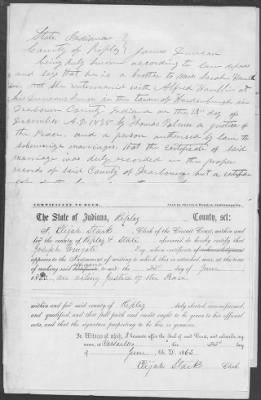 State Indiana
County of Ripley James Duncan
being duly sworn according to law deposes
and says that he is a brother to Mrs Sarah
on the intermarriage with Alfred Hamlin at
his in the town of Hardensburgh in
Dearborn County Indiana on the 13th day of
December A.D. 1838 by Thomas Palmer a Justice of
the Peace, and a person authorized by law to
solemnize marriages, that the certificate of said
marriage was duly recorded in the proper
records of said County of Dearborn but a certified
CERTIFICATE TO SUCH.
The State of Indiana, Ripley County, sct:
I, Elijah Stark Clerk of the Circuit Court, within and
for the county of Ripley & State aforesaid do hereby certify that
Joseph by whose
appears to the instrument of writing to which this is attached, were, at the time
of making said the 23d day of June
1862 an acting Justice of the Peace
within and for said county of Ripley duly elected, commissioned,
and qualified, and that full faith and credit ought to be given to his official
acts, and that the signature purporting to be his, is genuine.
In Witness whereof, I hereunto affix the Seal of said Court, and subscribe my
name at Versailles, this 23d day
of June A.D. 1862.
Elijah Stark Clerk